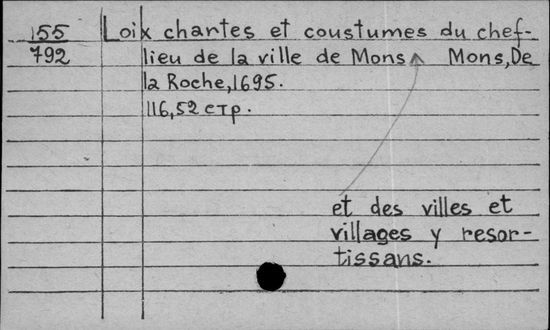 155
792
Loix chartes et coustumes du chef-
lieu de la ville de Mons Mons, De
la Roche, 1695.
116, 52 стр.
et des villes et
villages y resor-
tissans.